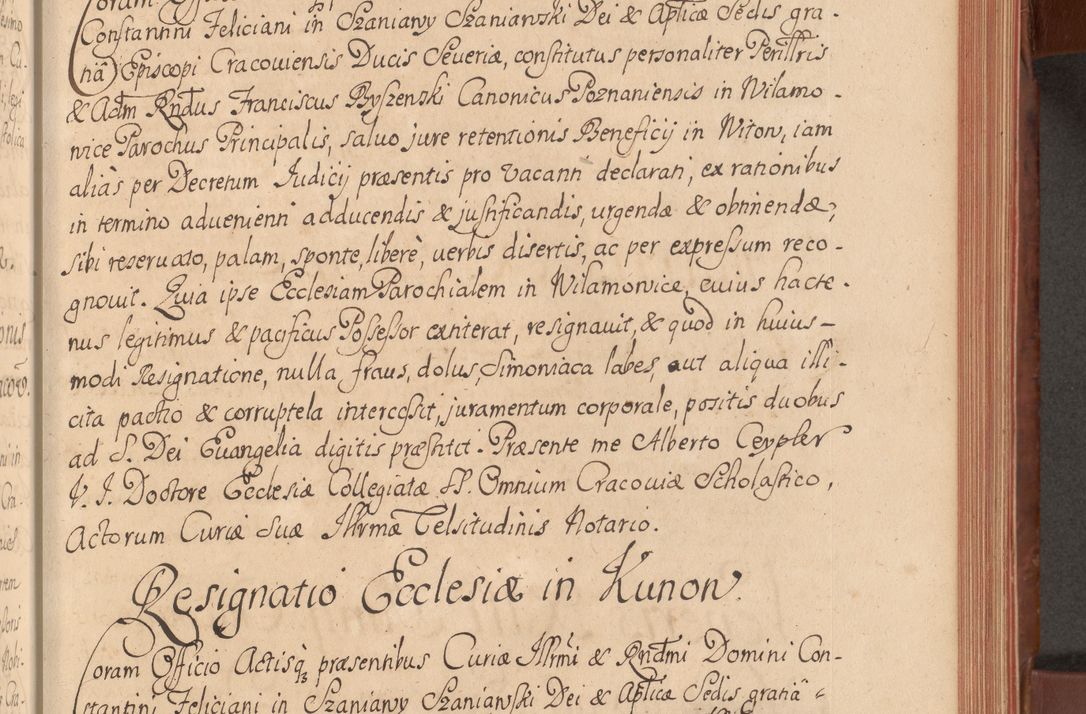 Constantini Feliciani in Szaniawy Szaniawski Dei & Aplicæ Sedis gra-
tiâ Episcopi Cracoviensis Ducis Severiæ, constitutus personaliter Perillris
& Adm Rndus Franciscus Byszenski Canonicus Poznaniensis in Wilamo-
wice Parochus Principalis, salvo jure retentionis Beneficij in Witow, iam
aliàs per Decretum Iudicij præsentis pro vacanti declarati, ex rationibus
in termino advenienti adducendis & justificandis, urgendæ & obtinendæ,
sibi reservato, palam, sponte, liberè, verbis disertis, ac per expressum reco-
gnovit. Quia ipse Ecclesiam Parochialem in Wilamowice, cuius hacte-
nus legitimus & pacificus Possessor extiterat, resignavit, & quod in huius-
modi Resignatione, nulla fraus, dolus, Simoniaca labes, aut aliqua illi-
cita pactio & corruptela intercessit, juramentum corporale, positis duobus
ad S. Dei Evangelia digitis præstitit. Præsente me Alberto Ceypler
V. I. Doctore Ecclesiæ Collegiatæ SS. Omnium Cracoviæ Scholastico,
Actorum Curiæ Suæ Illrmæ Celsitudinis Notario.
Resignatio Ecclesiæ in Kunow.
Coram Officio Actisq præsentibus Curiæ Illrmi & Rndmi Domini Con-
stantini Feliciani in Szaniawy Szaniawski Dei & Aplicæ Sedis gratiâ